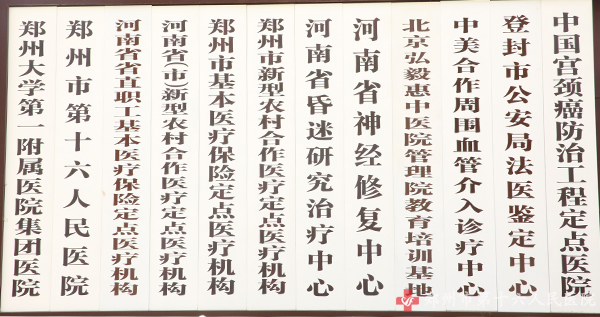 郑州大学第一附属医院集团医院
郑州市第十六人民医院
河南省省直职工基本医疗保险定点医疗机构
河南省(市)新型农村合作医疗定点医疗机构
郑州市基本医疗保险定点医疗机构
郑州市新型农村合作医疗定点医疗机构
河南省昏迷研究治疗中心
河南省神经修复中心
北京弘毅惠中医院管理院教育培训基地
中美合作周围血管介入诊疗中心
登封市公安局法医鉴定中心
中国宫颈癌防治工程定点医院
郑州市第十六人民医院